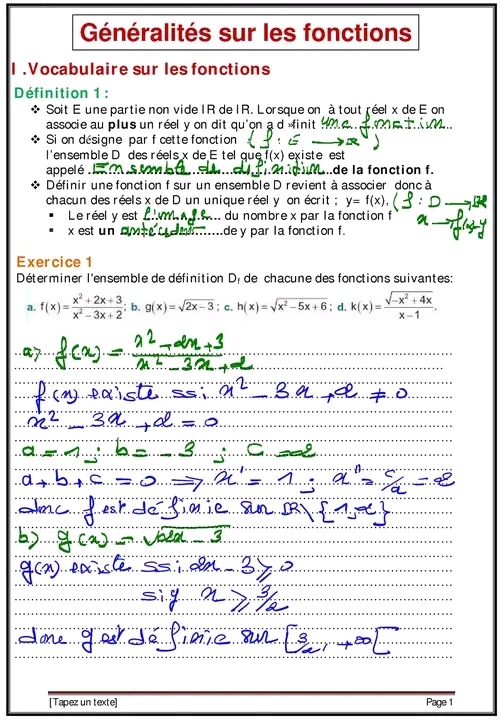 Généralités sur les fonctions
I .Vocabulaire sur les fonctions
Définition 1 :
❖ Soit E une partie non vide IR de IR. Lorsque on à tout réel x de E on
associe au plus un réel y on dit qu'on a d »finit une fonction
❖ Si on désigne par f cette fonction (f : E → IR)
l'ensemble D des réels x de E tel que f(x) existe est
appelé Ensemble de définition de la fonction f.
❖ Définir une fonction f sur un ensemble D revient à associer donc à
chacun des réels x de D un unique réel y on écrit ; y= f(x), (f : D → IR
▪ Le réel y est l'image du nombre x par la fonction f x → f(x)=y
▪ x est un antécédent de y par la fonction f.
Exercice 1
Déterminer l'ensemble de définition Df de chacune des fonctions suivantes:
a. f(x) = (x²+2x+3)/(x²−3x+2) ; b. g(x) = √(2x−3) ; c. h(x) = √(x²−5x+6) ; d. k(x) = √(−x²+4x)/(x−1) .
a) f(x) = (x²+2x+3)/(x²−3x+2)
f(x) existe ssi x² − 3x + 2 ≠ 0
x² − 3x + 2 = 0
a = 1 ; b = −3 ; c = 2
a + b + c = 0 ⇒ x' = 1 ; x'' = c/a = 2
donc f est définie sur IR\{1,2}
b) g(x) = √(2x − 3)
g(x) existe ssi 2x − 3 ≥ 0
sig x ≥ 3/2
donc g est définie sur [3/2, +∞[
[Tapez un texte] Page 1